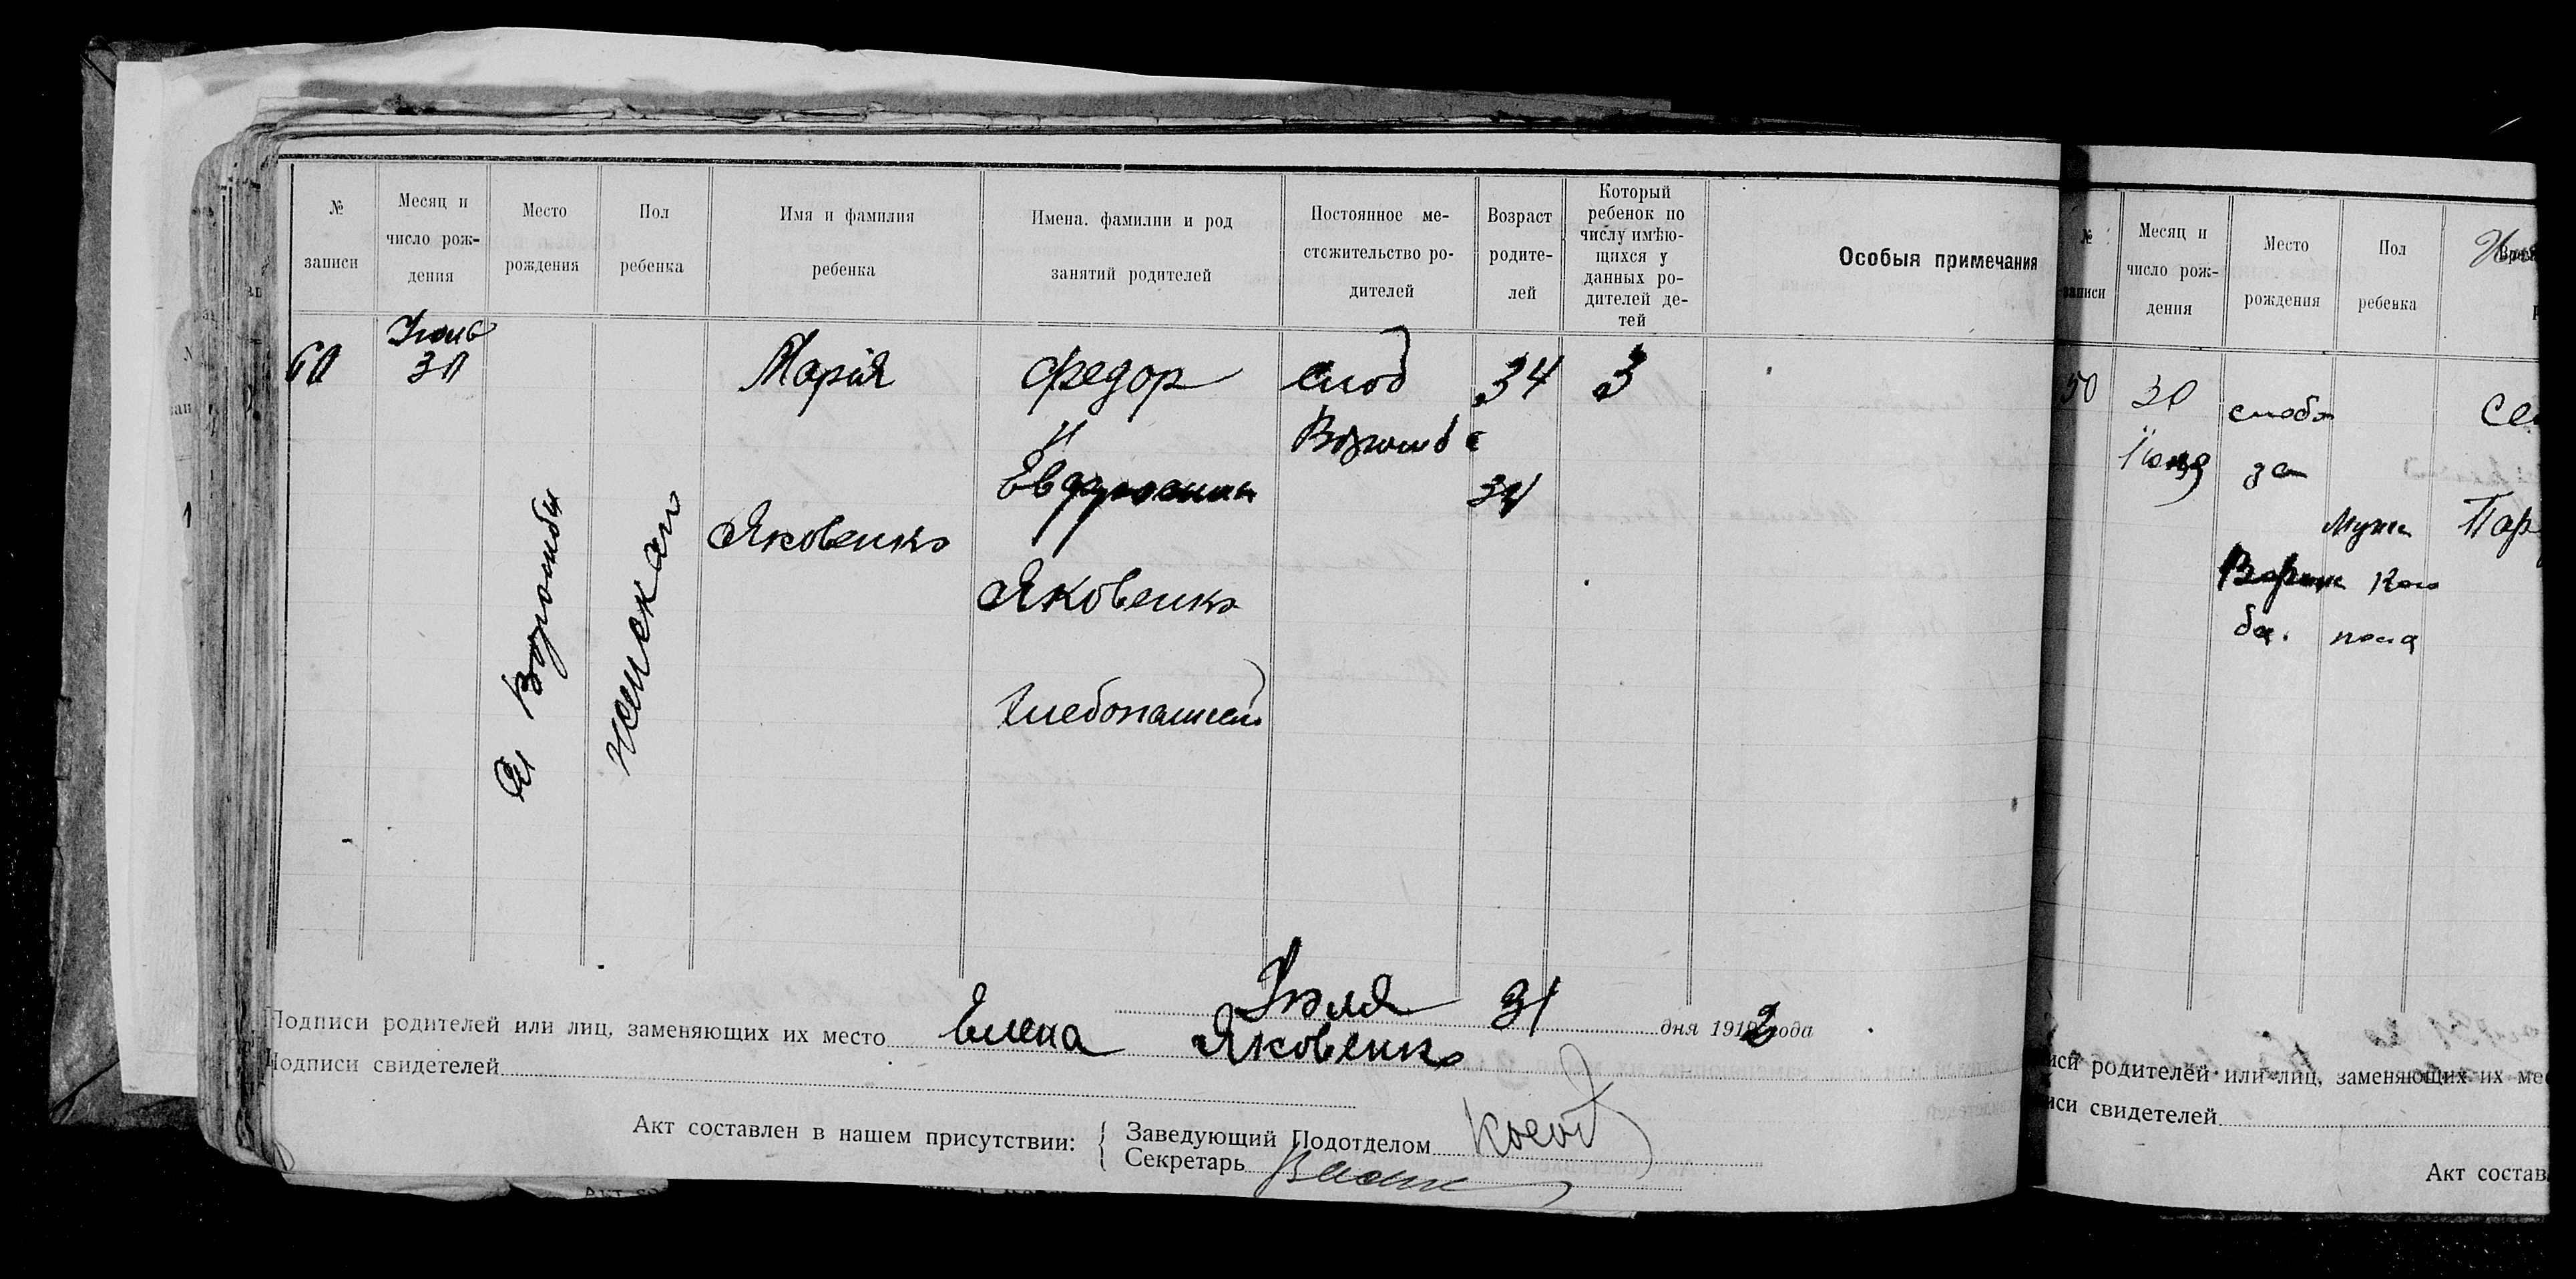 №
записи
Месяц и
число рож-
дения
Место
рождения
Пол
ребенка
Имя и фамилия
ребенка
Имена. фамилии и род
занятий родителей
Постоянное ме-
стожительство ро-
дителей
Возраст
родите-
лей
Который
ребенок по
числу имѣю-
щихся у
данных ро-
дителей де-
тей
Особыя примечания
60
30
Ворожбы
женскаго
Марія
Яковенко
Федор
и
Яковенко
Хлебопашец
слоб
Ворожба
34
34
3
Июля 31 дня 1919 2 года
Подписи родителей или лиц, заменяющих их место Елена Яковенко
Подписи свидетелей
Акт составлен в нашем присутствии:
Заведующий Подотделом
Секретарь
№
записи
Месяц и
число рож-
дения
Место
рождения
Пол
ребенка
50
30
слобо
да
Ворож
ба.
Муж
ско
пола
Пар
иси родителей или лиц, заменяющих их ме
иси свидетелей
Акт состав